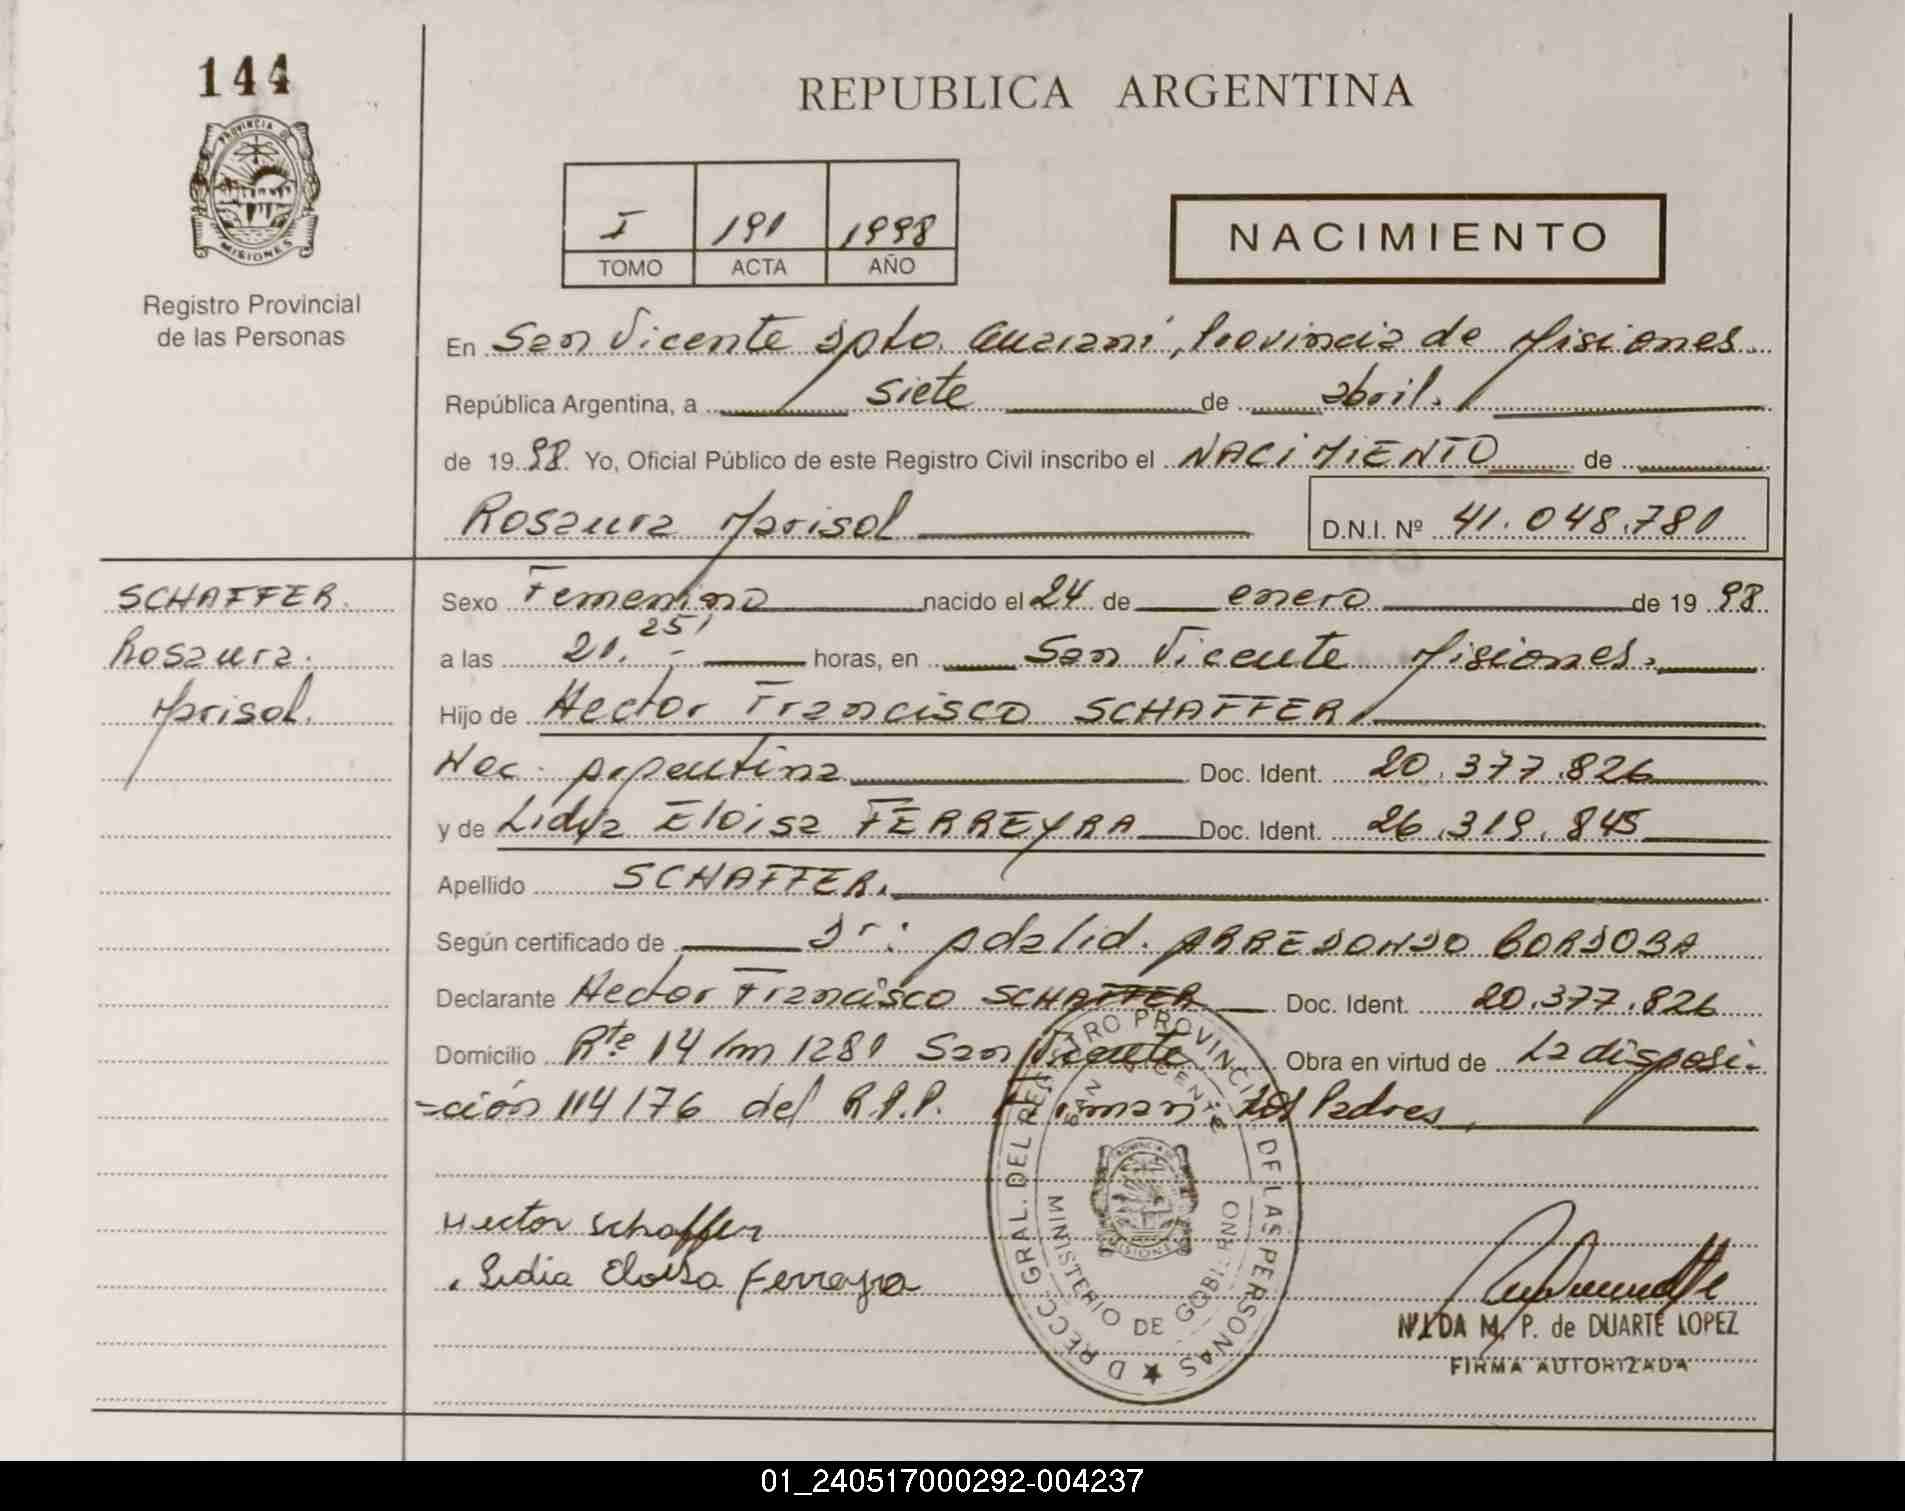 144
PROVINCIA DE
MISIONES
Registro Provincial
de las Personas
REPUBLICA ARGENTINA
I 191 1998
TOMO ACTA AÑO
NACIMIENTO
En San Vicente Dpto. Guaraní, Provincia de Misiones.
República Argentina, a siete de abril.
de 19 98 Yo, Oficial Público de este Registro Civil inscribo el NACIMIENTO de
Rosaura Marisol
D.N.I. Nº 41.048.781
SCHAFFER.
Rosaura.
Marisol.
Sexo Femenino nacido el 24 de enero de 19 98
a las 21.25' horas, en San Vicente Misiones.
Hijo de Hector Francisco SCHAFFER
Nac. Argentina Doc. Ident. 20.377.826
y de Lidya Eloisa FERREYRA Doc. Ident. 26.319.845
Apellido SCHAFFER.
Según certificado de Dr: Adalid. ARREDONDO CORDOBA
Declarante Hector Francisco SCHAFFER Doc. Ident. 20.377.826
Domicilio Rta 14 km 1281 San Vicente Obra en virtud de La disposi-
-ción 114/76 del R.P.P. Firman los Padres,
Hector Schaffer
Lidia Eloisa Ferreyra
DRECC. GRAL. DEL REGISTRO PROVINCIAL DE LAS PERSONAS
SAN VICENTE
MINISTERIO DE GOBIERNO
PROVINCIA DE
MISIONES
NILDA M. P. de DUARTE LOPEZ
FIRMA AUTORIZADA
01_240517000292-004237